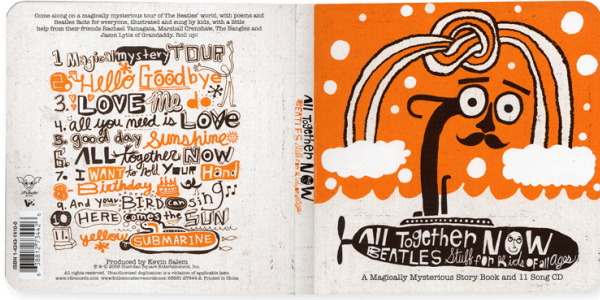 Come along on a magically mysterious tour of The Beatles' world, with poems and
Beatles facts for everyone, illustrated and sung by kids, with a little
help from their friends Rachael Yamagata, Marshall Crenshaw, The Bangles and
Jason Lytle of Grandaddy. Roll up!
1. Magical mystery TOUR
2. Hello Goodbye
3. LOVE me do
4. all you need is LOVE
5. good day Sunshine
6. ALL together NOW
7. I WANT to Holl YOUR Hand
8. Birthday
9. And your BIRD can sing
10. HERE comes the SUN
11. yellow SUBMARINE
Produced by Kevin Salem
All rights reserved. Unauthorized duplication is a violation of applicable laws.
All Together NOW
BEATLES Stuff for Kids of all ages
All Together NOW
BEATLES Stuff for Kids of all ages
A Magically Mysterious Story Book and 11 Song CD